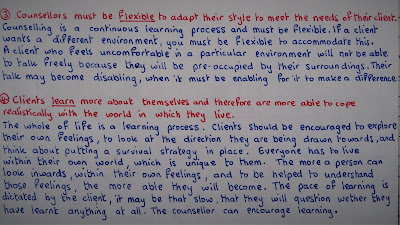 ③ Counsellors must be Flexible to adapt their style to meet the needs of their client.
Counselling is a continuous learning process and must be Flexible. If a client
wants a different environment, you must be Flexible to accommodate this.
A client who Feels uncomfortable in a particular environment will not be able
to talk Freely because they will be pre-occupied by their surroundings. Their
talk may become disabling, when it must be enabling for it to make a difference.
④ Clients learn more about themselves and therefore are more able to cope
realistically with the world in which they live.
The whole of life is a learning process. Clients should be encouraged to explore
their own Feelings, to look at the direction they are being drawn towards, and
think about putting a survival strategy in place. Everyone has to live
within their own world, which is unique to them. The more a person can
look inwards, within their own feelings, and to be helped to understand
those feelings, the more able they will become. The pace of learning is
dictated by the client, it may be that slow, that they will question wether they
have learnt anything at all. The counsellor can encourage learning.